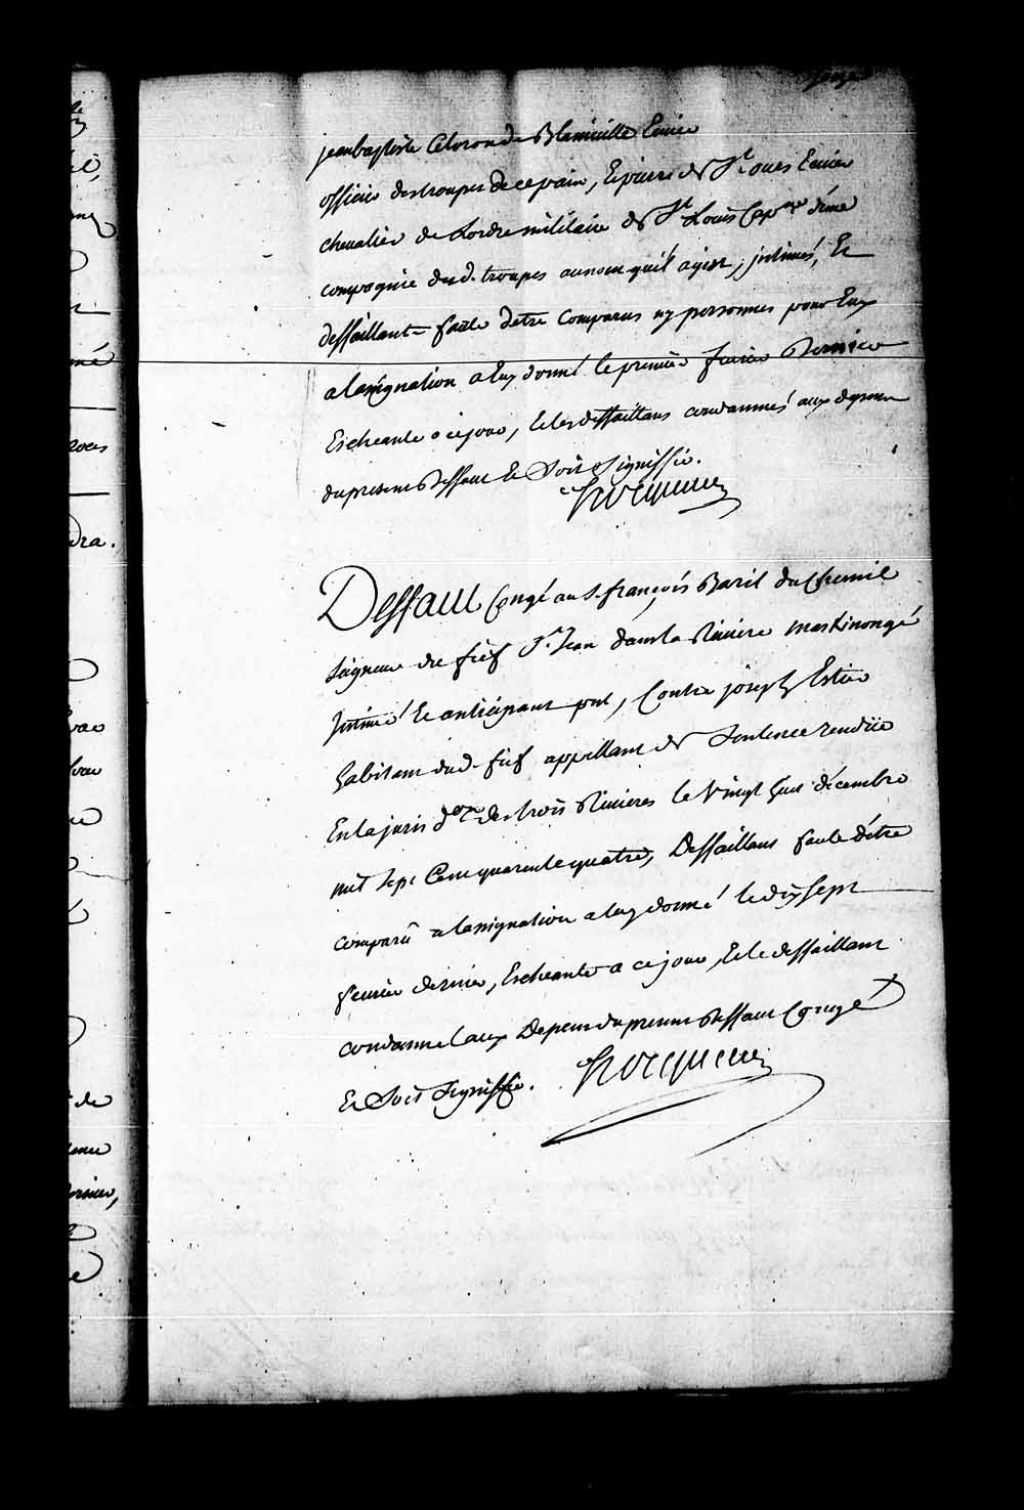 jean baptiste Celoron de Blainville Ecuier
officier des troupes de ce païs, Et pierre de St. ours Ecuier
chevalier de Lordre militaire de St. Louis Cap.ne d'une
compagnie desd. troupes au nom quil agist, jntimés, Et
deffaillants faute detre Comparus ny personnes pour Eux
a lassignation a Eux donné le premier fevrier dernier
Escheante a ce jour, Et les deffaillans condamnés aux depens
du present deffaut Et Soit Signiffié.
hocquart
Deffaut Congé au S. françois Baril du Chesnil
Seigneur du fief St. Jean dans la Riviere maskinongé
Jntimé Et anticipant pnt, Contre joseph
habitant dud. fief appellant de Sentence rendüe
En la juris d.on des trois Rivieres le Vingt huit décembre
mil Sept Cent quarente quatre, Deffaillant faute d'être
comparû a lassignation a luy donné le dix Sept
fevrier dernier, Escheante a ce jour, Et le deffaillant
condamné aux Depens du present deffaut Congé
Et Soit Signiffié.
hocquart